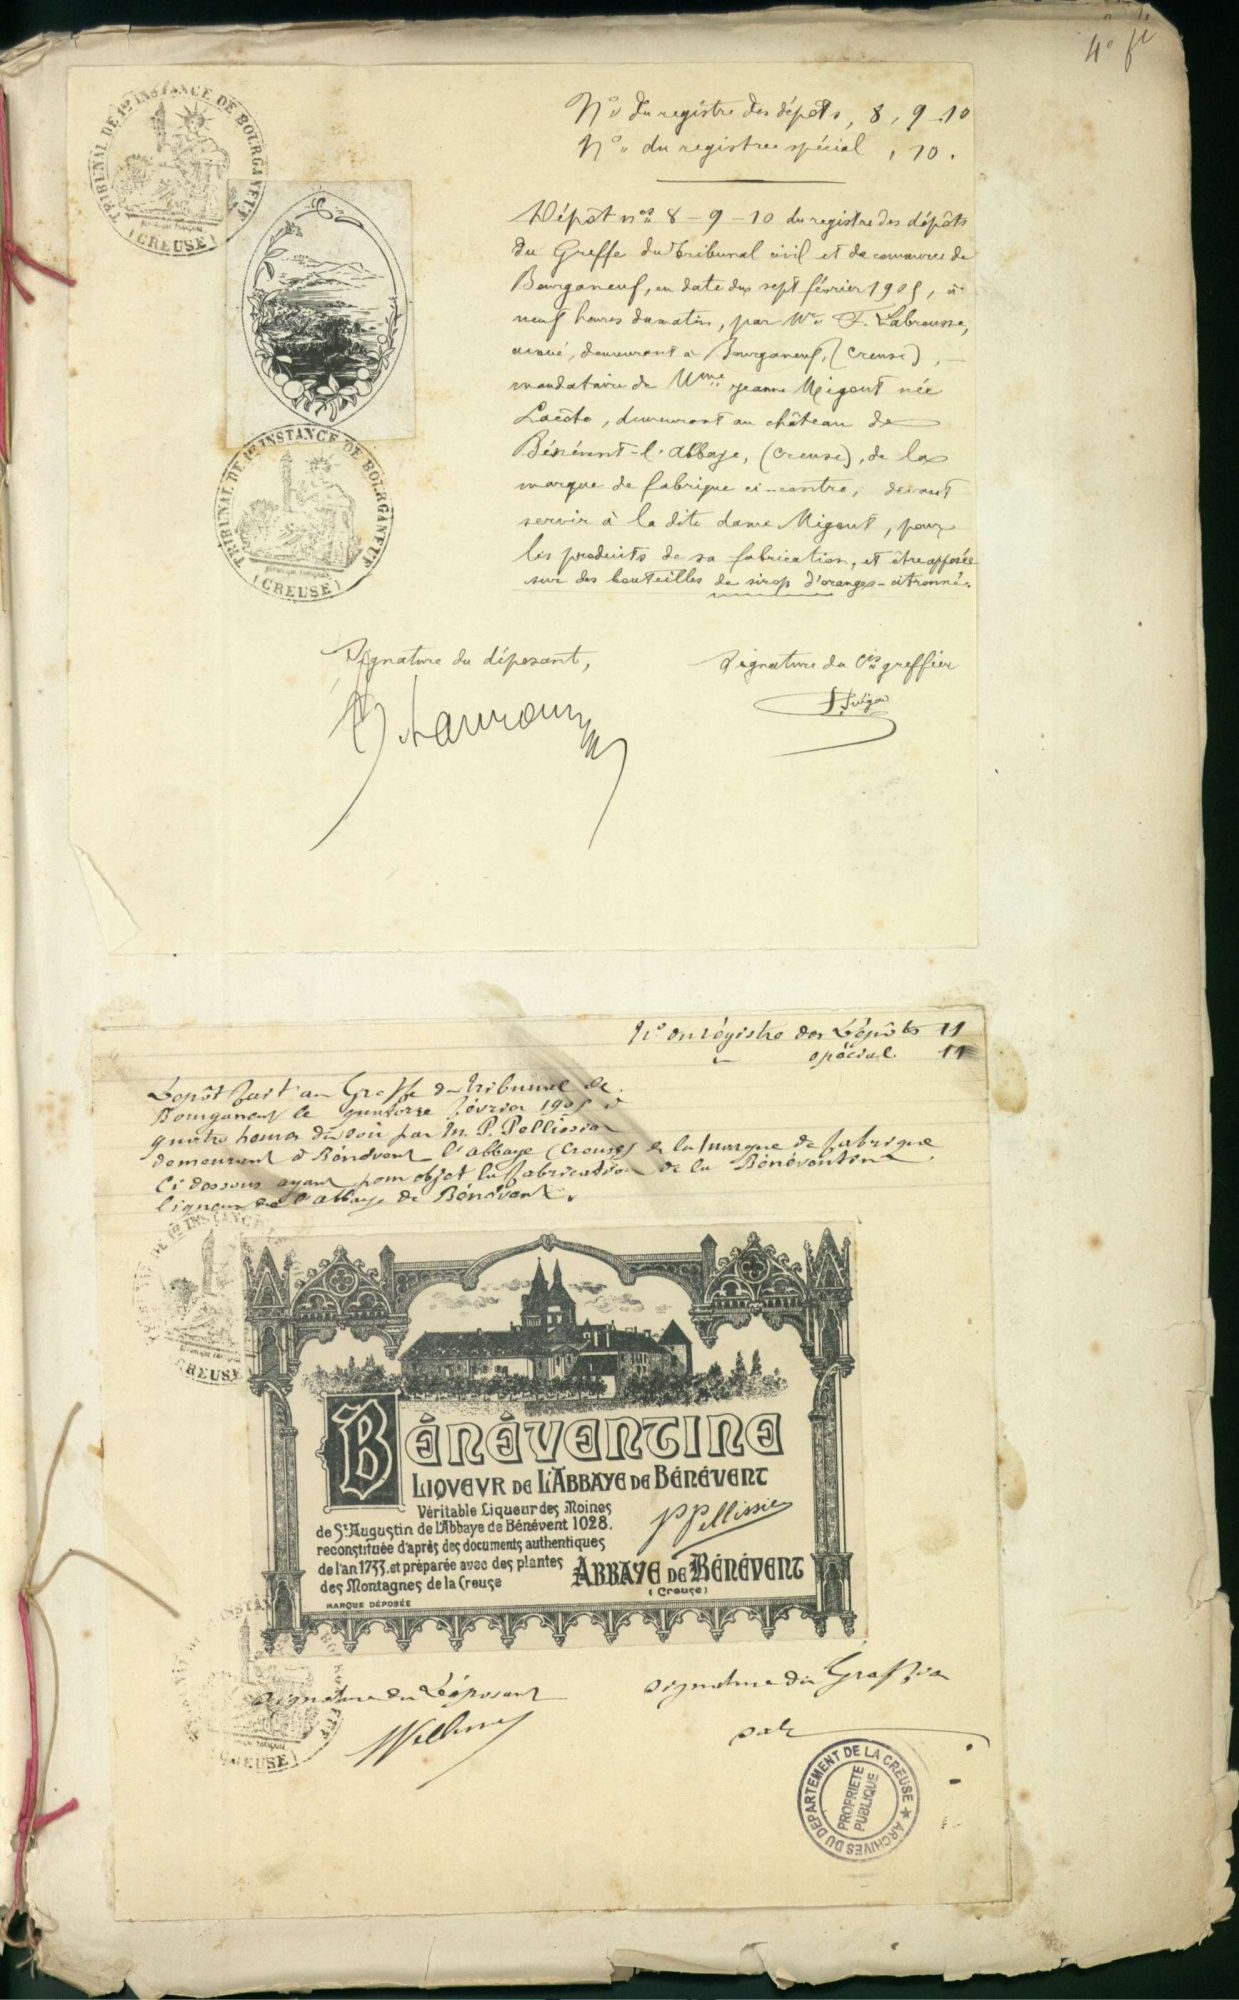 4e ft
Nos du registre des dépôts, 8, 9-10
No du registre spécial, 10.
Dépôt nos 8-9-10 du registre des dépôts
du Greffe du Tribunal civil et de commerce de
Bourganeuf, en date du sept février 1905, à
neuf heures du matin, par Me F. Labrousse,
avoué, demeurant à Bourganeuf, (Creuse),
mandataire de Mme Jeanne Migout née
Lacôte, demeurant au château de
Bénévent-l'Abbaye, (Creuse), de la
marque de fabrique ci-contre, devant
servir à la dite dame Migout, pour
les produits de sa fabrication, et être apposée
sur des bouteilles de sirop d'oranges-citronné.
TRIBUNAL DE 1re INSTANCE DE BOURGANEUF
(CREUSE)
TRIBUNAL DE 1re INSTANCE DE BOURGANEUF
(CREUSE)
Signature du déposant,
Signature du cis greffier
No du régistre des Dépôts 11
spécial 11
Dépôt fait au Greffe du tribunal de
Bourganeuf le quatorze février 1905 à
quatre heures du soir par M. P. Pellissier
demeurant à Bénévent l'abbaye (Creuse) de la marque de fabrique
ci dessous ayant pour objet la fabrication de la Bénéventine
liqueur de l'abbaye de Bénévent.
DE 1re INSTANCE
CREUSE
BÉNÉVENTINE
LIQVEVR DE L'ABBAYE DE BÉNÉVENT
Véritable Liqueur des Moines
de St Augustin de l'Abbaye de Bénévent 1028.
reconstituée d'après des documents authentiques
de l'an 1733. et préparée avec des plantes
des Montagnes de la Creuse
P Pellissier
ABBAYE DE BÉNÉVENT
(Creuse)
MARQUE DÉPOSÉE
INSTANCE
(CREUSE)
Signature du Déposant
Signature du Greffier
ARCHIVES DU DEPARTEMENT DE LA CREUSE ★
PROPRIETE
PUBLIQUE